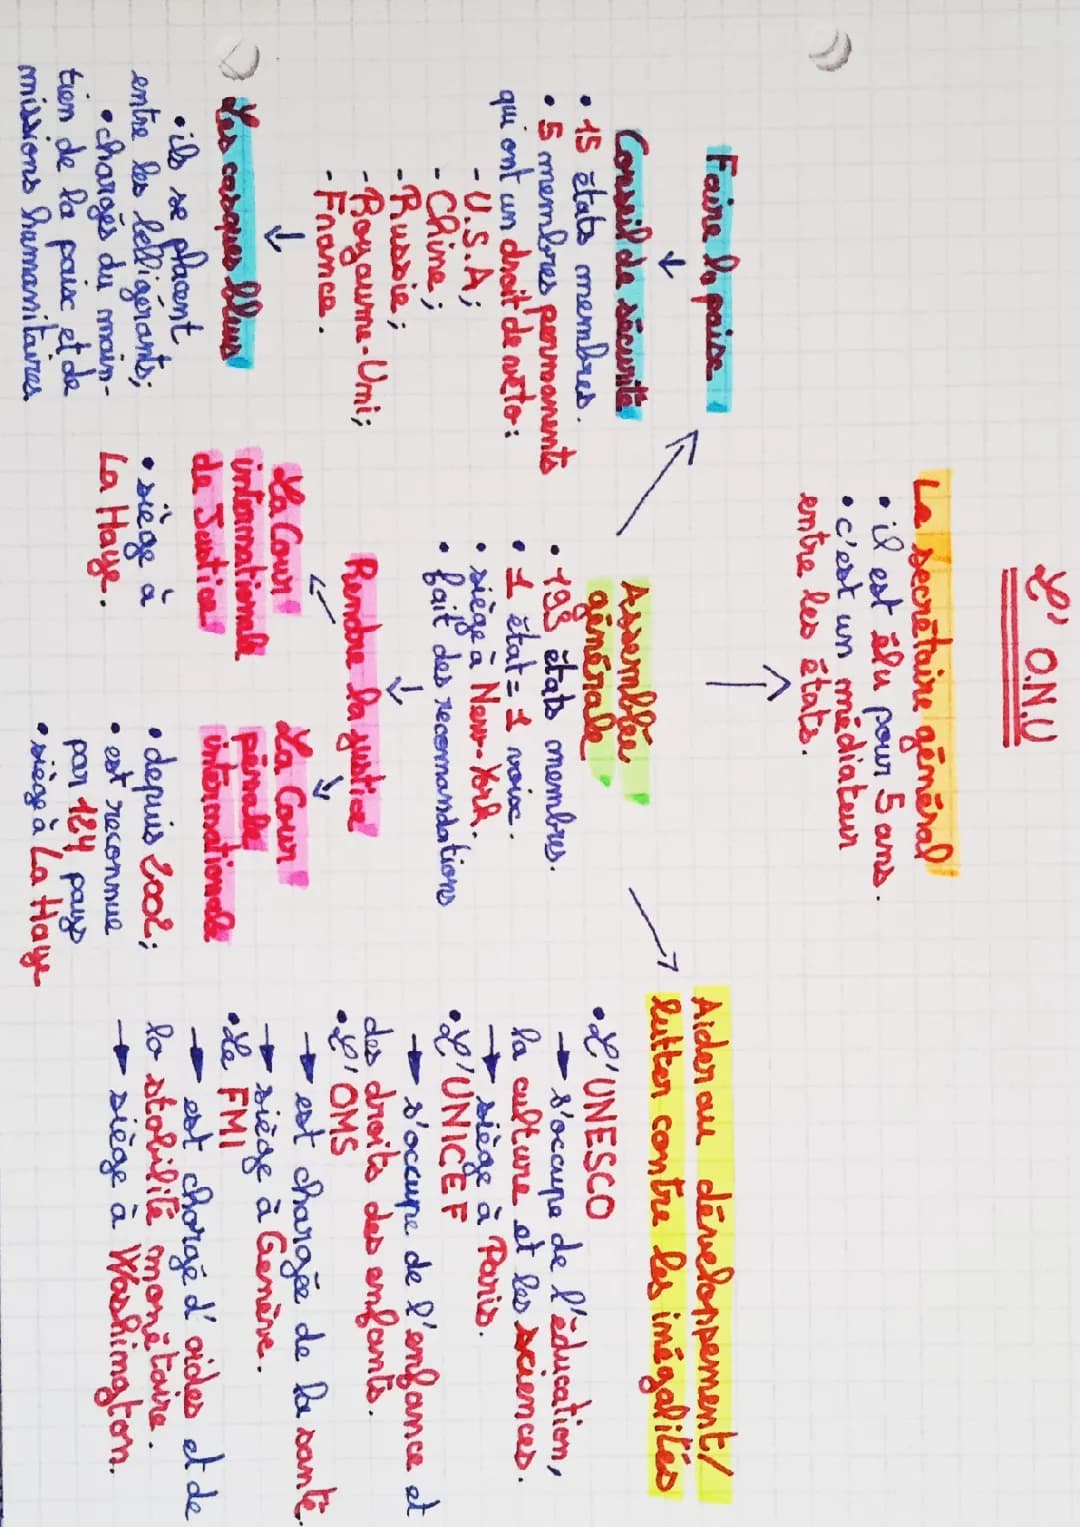 L'O.N.U
Le secrétaire général
• il est élu pour 5 ans.
• c'est un médiateur
entre les états.
Faire la paix
Conseil de sécurité
• 15 états membres.
• 5 membres permanents
qui ont un droit de véto :
- U.S.A ;
- Chine ;
- Russie ;
- Royaume-Uni ;
- France.
Les casques bleus
• ils se placent
entre les belligérants ;
• chargés du main-
tien de la paix et de
missions humanitaires
Assemblée
générale
• 193 états membres.
• 1 état = 1 voix.
• siège à New-York.
• fait des recommandations
Rendre la justice
La Cour
internationale
de Justice
• siège à
La Haye.
La Cour
pénale
internationale
• depuis 2002 ;
• est reconnue
par 124 pays
• siège à La Haye
Aider au développement/
lutter contre les inégalités
• L'UNESCO
→ s'occupe de l'éducation,
la culture et les sciences.
→ siège à Paris.
• L'UNICEF
→ s'occupe de l'enfance et
des droits des enfants.
• L'OMS
→ est chargée de la santé.
→ siège à Genève.
• Le FMI
→ est chargé d'aides et de
la stabilité monétaire.
→ siège à Washington.